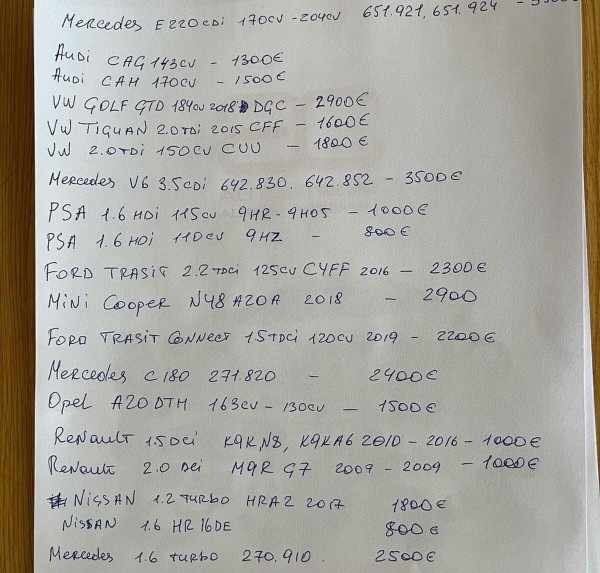 Mercedes E220CDi 170cv - 204cv 651.921, 651.924
Audi CAG 143cv - 1300€
Audi CAH 170cv - 1500€
VW GOLF GTD 184cv 2018 DGC - 2900€
VW TIGUAN 2.0TDi 2015 CFF - 1600€
VW 2.0TDi 150cv CUU - 1800€
Mercedes V6 3.5CDi 642.830. 642.852 - 3500€
PSA 1.6 HDi 115cv 9HR - 9H05 - 1000€
PSA 1.6 HDi 110cv 9HZ - 800€
FORD TRASIT 2.2TDCi 125cv CYFF 2016 - 2300€
Mini Cooper N48A20A 2018 - 2900
FORD TRASIT Connect 1.5TDCi 120cv 2019 - 2200€
Mercedes C180 271.820 - 2400€
Opel A20DTH 163cv - 130cv - 1500€
Renault 1.5DCi K9K,N8, K9KA6 2010 - 2016 - 1000€
Renault 2.0 DCi M9R G7 2007 - 2009 - 1000€
NISSAN 1.2 TURBO HRA2 2017 1800€
NISSAN 1.6 HR16DE 800€
Mercedes 1.6 turbo 270.910. 2500€